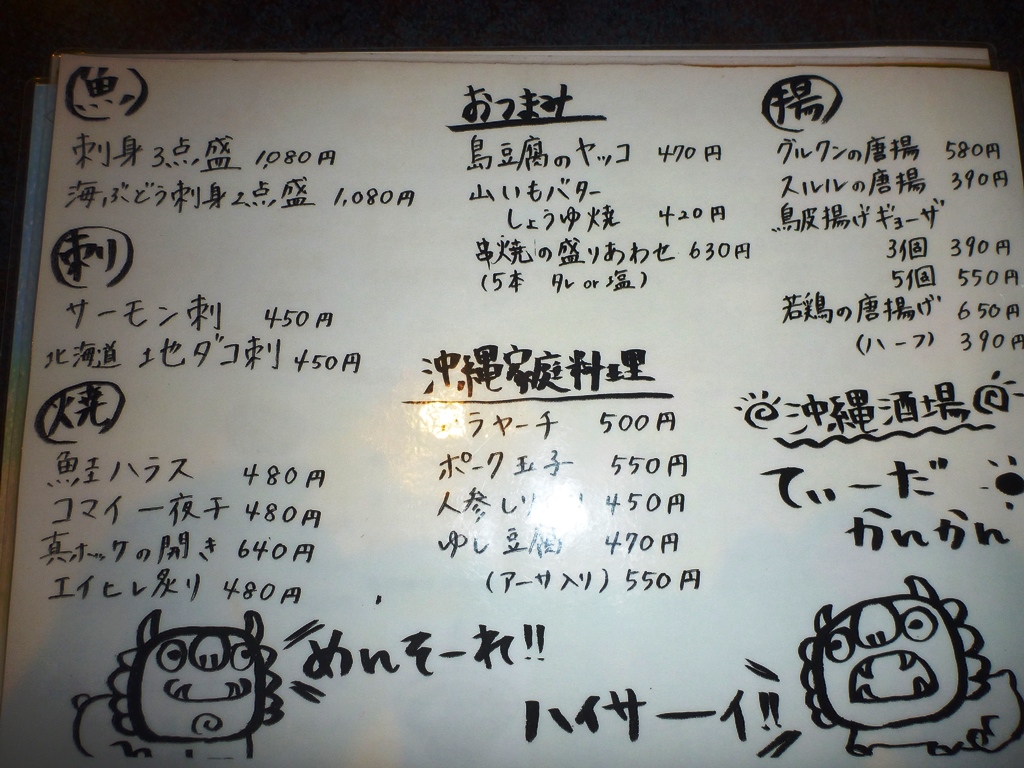 魚
刺身3点盛 1,080円
海ぶどう刺身2点盛 1,080円
刺
サーモン刺 450円
北海道 地ダコ刺 450円
焼
鮭ハラス 480円
コマイ一夜干 480円
真ホッケの開き 640円
エイヒレ炙り 480円
おつまみ
島豆腐のヤッコ 470円
山いもバター
しょうゆ焼 420円
串焼の盛りあわせ 630円
(5本 タレor塩)
沖縄家庭料理
ラヤーチ 500円
ポーク玉子 550円
人参しリ 450円
ゆし豆腐 470円
(アーサ入り) 550円
揚
グルクンの唐揚 580円
スルルの唐揚 390円
鳥皮揚げギョーザ
3個 390円
5個 550円
若鶏の唐揚げ 650円
(ハーフ) 390円
沖縄酒場
てぃーだ
かんかん
めんそーれ!!
ハイサーイ!!